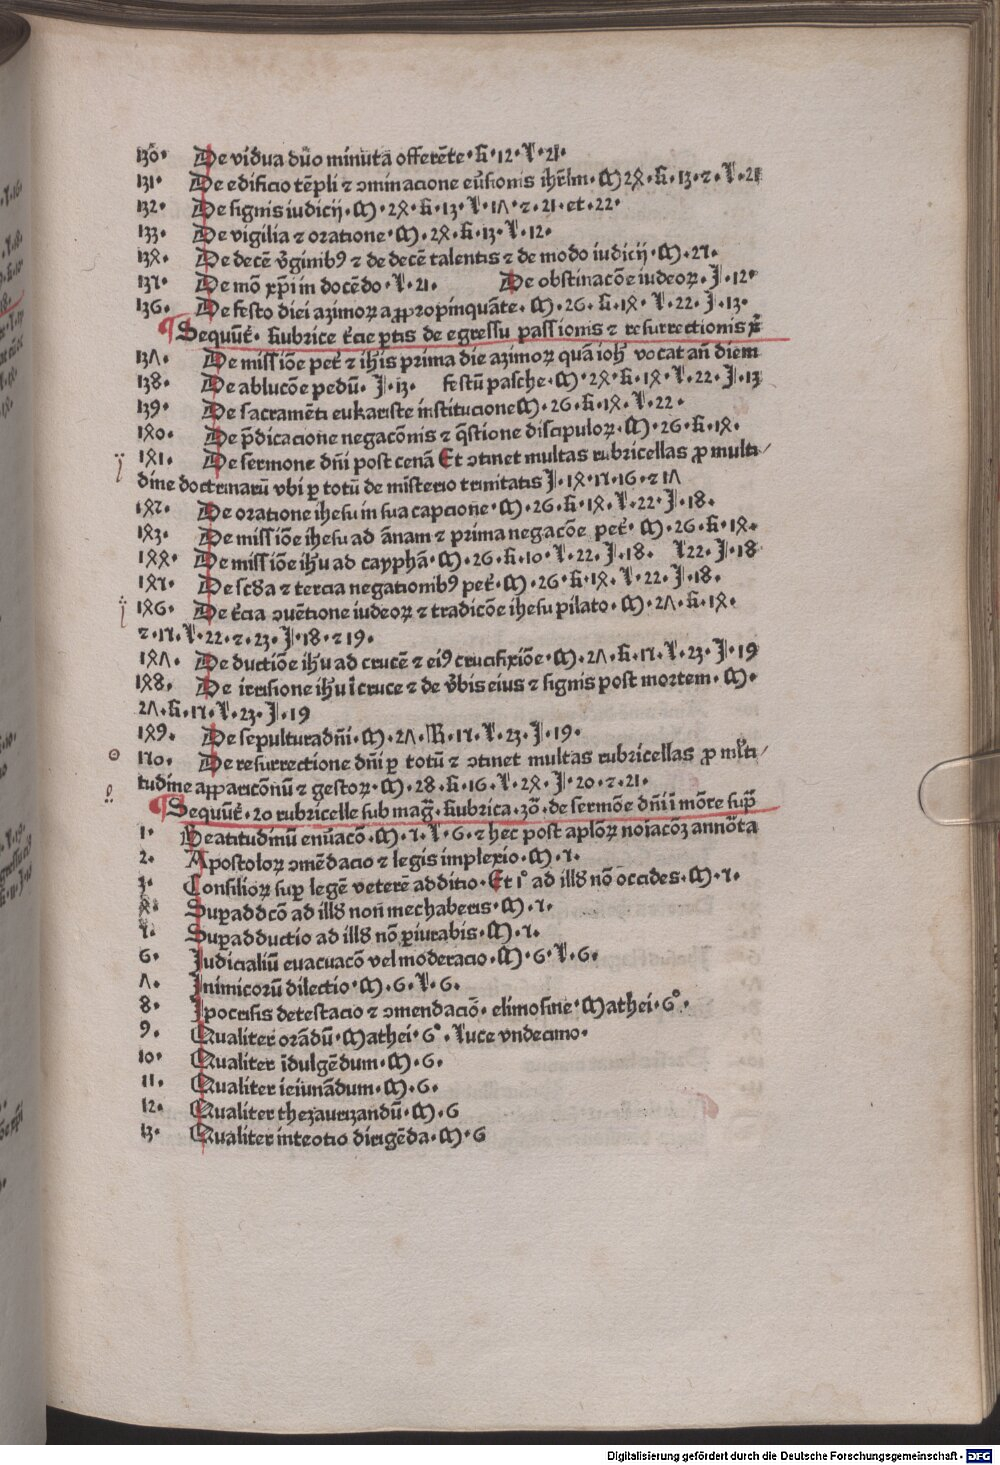 130· De vidua duo minuta offerēte· R·12·L·21·
131· De edificio tēpli ⁊ ↄminacione eūsionis ihrlm·M 24·R·13·⁊·L·21
132· De signis iudicij·M·24·R·13·L·17·⁊·21·et·22·
133· De vigilia ⁊ oratione·M·24·R·13·L·12·
134· De decē v̄ginibꝰ ⁊ de decē talentis ⁊ de modo iudicij·M·25·
135· De mō xp̄i in docēdo·L·21· De obstinacōe iudeoꝝ·J·12·
136· De festo diei azimoꝝ appropinquāte·M·26·R·14·L·22·J·13·
¶ Sequūt᷑· Rubrice t̄cie ꝑtis de egressu passionis ⁊ resurrectionis xp̄
137· De missiōe pet᷑ ⁊ ihis prima die azimoꝝ quā ioh̄ vocat an̄ diem
138· De ablucōe pedū· J·13· festū pasche·M·24·R·14·L·22·J·13
139· De sacramēti eukariste institucione M·26·R·14·L·22·
140· De p̄dicacione negacōnis ⁊ q̄stione discipuloꝝ·M·26·R·14·
141· De sermone dn̄i post cenā Et ↄtinet multas rubricellas ꝓ multi⸗
dine doctrinarū vbi ꝑ totū de misterio trinitatis J·14·15·16·⁊ 17
142· De oratione ihesu in sua capcione·M·26·R·14·L·22·J·18·
143· De missiōe ihesu ad ānam ⁊ prima negacōe pet᷑·M·26·R·14·
144· De missiōe ihu ad cayphā·M·26·R·10·L·22·J·18· L22·J·18
145· De scd̄a ⁊ tercia negationibꝰ pet᷑·M·26·R·14·L·22·J·18·
146· De t̄cia ↄuētione iudeoꝝ ⁊ tradicōe ihesu pilato·M·27·R·14·
⁊·15·L·22·⁊·23·J·18·⁊ 19·
147· De ductiōe ihu ad crucē ⁊ eiꝰ crucifixiōe·M·27·R·15·L·23·J·19
148· De irrisione ihu ī cruce ⁊ de v̄bis eius ⁊ signis post mortem·M·
27·R·15·L·23·J·19
149· De sepultura dn̄i·M·27·R·15·L·23·J·19·
150· De resurrectione dn̄i ꝑ totū ⁊ ↄtinet multas rubricellas ꝓ mlti⸗
tudine apparicōnū ⁊ gestoꝝ·M·28·R·16·L·24·J·20·⁊·21·
¶ Sequūt᷑·20 rubricelle sub mag̃·Rubrica·30·de sermōe dn̄i ī mōte sup̄
1· Beatitudinū enūacō·M·5·L·6·⁊ hec post apl̄oꝝ noīacōʒ annōta
2· Apostoloꝝ ↄmēdacio ⁊ legis implexio·M·5·
3· Consilioꝝ suꝑ legē veterē additio·Et 1° ad illd̄ nō occides·M·5·
4· Suꝑaddcō ad illd̄ non̄ mechaberis·M·5·
5· Suꝑadductio ad illd̄ nō ꝑiurabis·M·5·
6· Judicialiū euacuacō vel moderacio·M·6·L·6·
7· Inimicorū dilectio·M·6·L·6·
8· Ipocrisis detestacio ⁊ ↄmendaciō· elimosine·Mathei·6°·
9· Qualiter orādū·Mathei·6°·Luce vndecimo·
10· Qualiter īdulgēdum·M·6·
11· Qualiter ieiunādum·M·6·
12· Qualiter thezaurizandū·M·6
13· Qualiter inteotio dirigēda·M·6
Digitalisierung gefördert durch die Deutsche Forschungsgemeinschaft · DFG